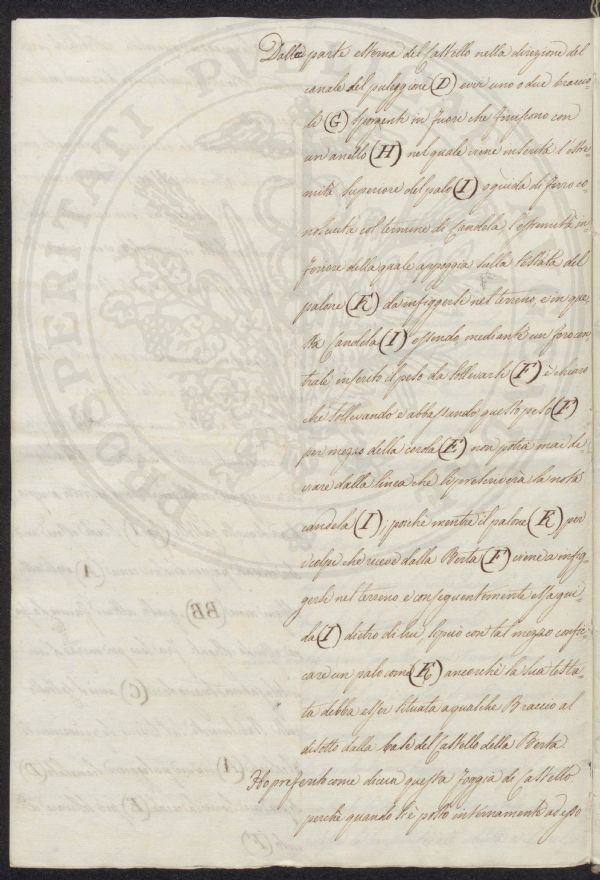 PROSPERITATI PUBLICAE
Dalla parte esterna del Castello nella direzione del
canale del puleggione (D) evvi uno o due braccio-
li (G) sporgenti in fuore che finiscono con
un anello (H) nel quale viene inserita l'estre-
mità superiore del palo (I) o guida di ferro co-
nosciuta col termine di Candela l'estremità in-
feriore della quale appoggia sulla testata del
palone (K) da infiggersi nel terreno, e in que-
sta Candela (I) essendo mediante un foro cen-
trale inserito il peso da sollevarsi (F) è chiaro
che sollevando e abbassando questo peso (F)
per mezzo della corda (E) non potrà mai de-
viare dalla linea che li prescriverà la nota
candela (I); poiché mentre il palone (K) per
i colpi che riceve dalla Berta (F) viene a infig-
gersi nel terreno e conseguentemente essa gui-
da (I) dietro di lui, si può con tal mezzo confic-
care un palo come (K) ancorché la sua testa-
ta debba esser situata a qualche Braccio al
disotto dalla base del Castello della Berta.
Ho preferito come diceva questa foggia di Castello
perché quando si è posto internamente ad esso